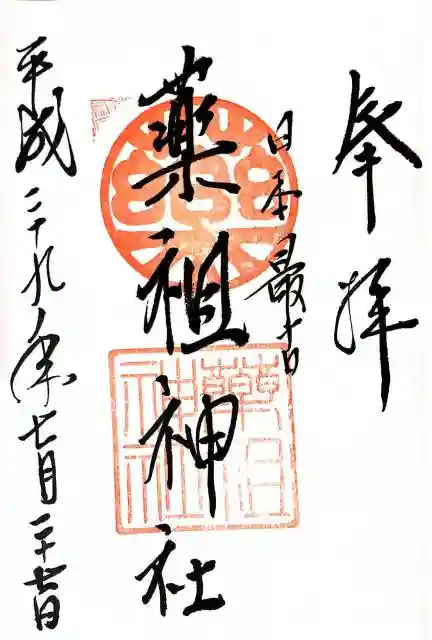 奉拝
日本最古
薬祖神社
平成二十九年七月二十七日